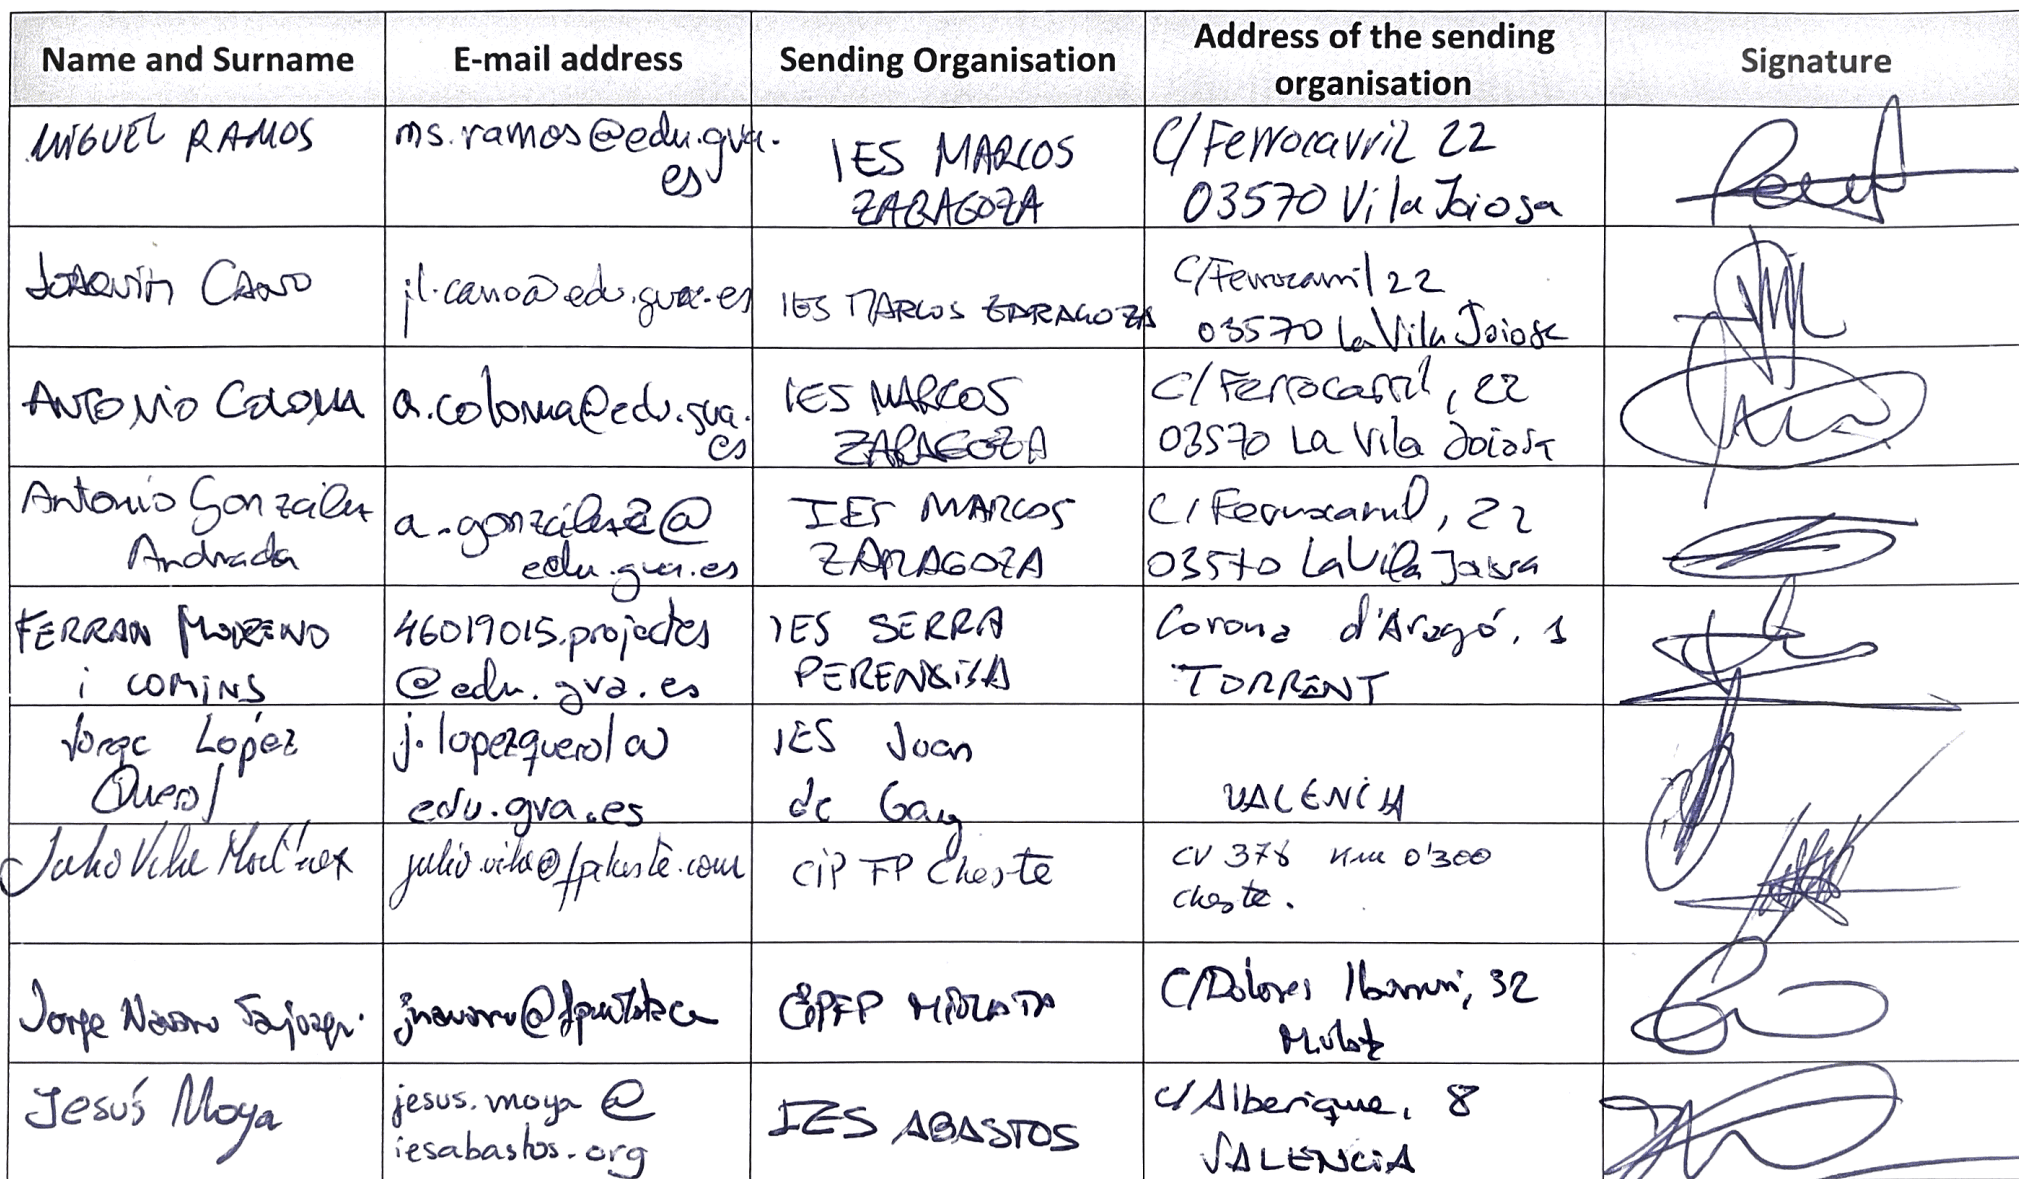 Name and Surname
E-mail address
Sending Organisation
Address of the sending
organisation
Signature
MIGUEL RAMOS
ms.ramos@edu.gva.
es
IES MARCOS
ZARAGOZA
C/Ferrocarril 22
03570 Vila Joiosa
JOAQUÍN CANO
jl.cano@edu.gva.es
IES MARCOS ZARAGOZA
C/Ferrocarril 22
03570 La Vila Joiosa
ANTONIO COLOMA
a.coloma@edu.gva.
es
IES MARCOS
ZARAGOZA
C/Ferrocarril, 22
03570 La Vila Joiosa
Antonio González
Andrada
a.gonzalez2@
edu.gva.es
IES MARCOS
ZARAGOZA
C/Ferrocarril, 22
03570 La Vila Joiosa
FERRAN MORENO
i COMINS
46019015.projectes
@edu.gva.es
IES SERRA
PERENXISA
Corona d'Aragó, 1
TORRENT
Jorge López
Querol
j.lopezquerol@
edu.gva.es
IES Joan
de Gay
VALENCIA
Julio Vila Martínez
julio.vila@fpcheste.com
CIP FP Cheste
CV 378 Km 0'300
cheste.
Jorge Navarro
CIPFP MISLATA
C/Dolores Ibarruri, 32
Mislata
Jesús Moya
jesus.moya@
iesabastos.org
IES ABASTOS
C/Alberique, 8
VALENCIA